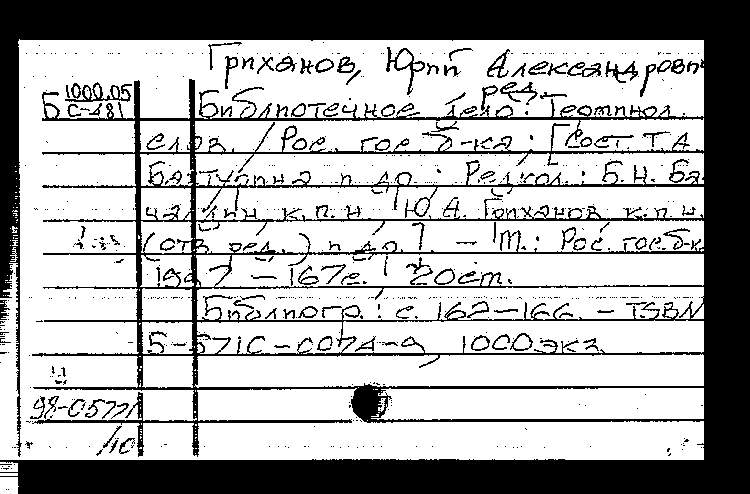 Гриханов, Юрий Александрович
ред.
Б 1000.05
С-481
Библиотечное дело: Терминол.
слов. / Рос. гос. б-ка; [Сост. Т.А.
Бахтурина и др.; Редкол.: Б.Н. Ба-
чалдин, к.п.н., Ю.А. Гриханов, к.п.н.
(отв. ред.) и др.]. - М.: Рос. гос. б-ка
1997 - 167с. 20см.
Библиогр.: с. 162-166. - ISBN
5-5710-0074-9, 1000экз.
98-0577
/40